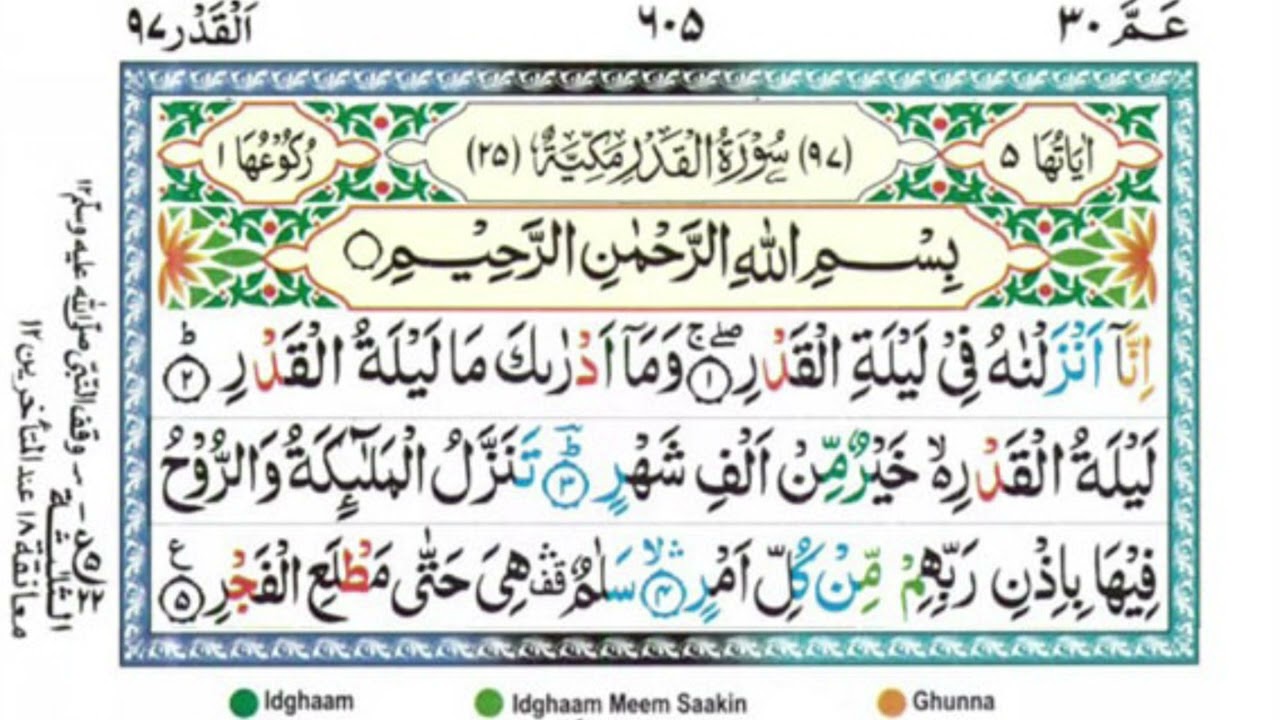 عَمَّ ٣٠
٦٠٥
اَلْقَدْر ٩٧
اٰيَاتُهَا ٥
(٩٧) سُوْرَةُ الْقَدْرِ مَكِّيَّةٌ (٢٥)
رُكُوْعُهَا ١
بِسْمِ اللّٰهِ الرَّحْمٰنِ الرَّحِيْمِ ○
اِنَّاۤ اَنْزَلْنٰهُ فِيْ لَيْلَةِ الْقَدْرِ ۖۚ ١ وَمَاۤ اَدْرٰىكَ مَا لَيْلَةُ الْقَدْرِ ؕ ٢
لَيْلَةُ الْقَدْرِ ۙ خَيْرٌ مِّنْ اَلْفِ شَهْرٍ ؕ ٣ تَنَزَّلُ الْمَلٰٓئِكَةُ وَالرُّوْحُ
فِيْهَا بِاِذْنِ رَبِّهِمْ مِّنْ كُلِّ اَمْرٍ ۙ ٤ سَلٰمٌ قف هِيَ حَتّٰى مَطْلَعِ الْفَجْرِ ع ٥
وقف النَّبِى صلّى الله عليه وسلّم ١٢
الثلٰثة
معانقة ١٨ عند المتأخرين ١٢
Idghaam
Idghaam Meem Saakin
Ghunna